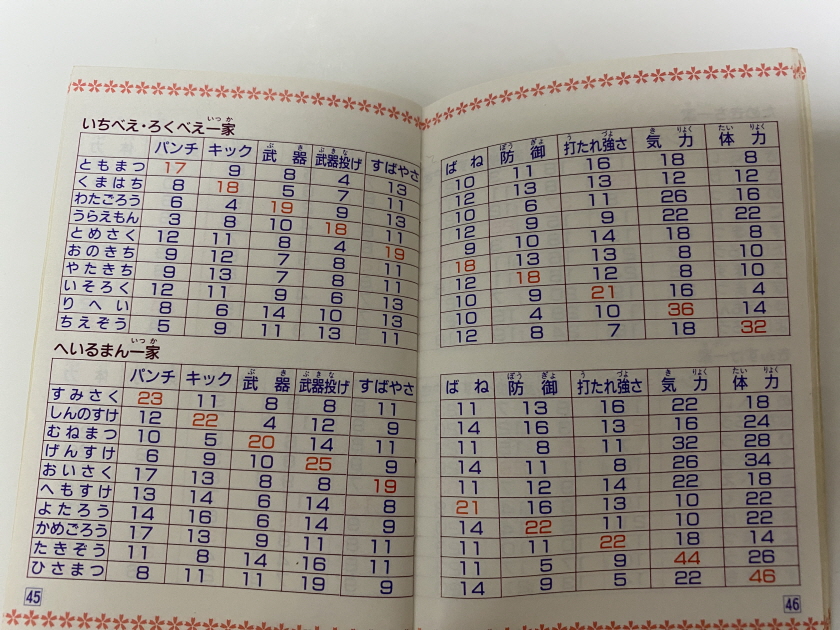 いちべえ・ろくべえ一家
いっか
パンチ キック 武器 武器投げ すばやさ
ぶ き ぶきな
ともまつ 17 9 8 4 13
くまはち 8 18 5 7 11
わたごろう 6 4 19 9 13
うらえもん 3 8 10 18 11
とめさく 12 11 8 4 19
おのきち 9 12 7 8 11
やたきち 9 13 7 8 11
いそろく 12 11 9 6 13
りへい 8 6 14 10 13
ちえぞう 5 9 11 13 11
へいるまん一家
いっか
パンチ キック 武器 武器投げ すばやさ
ぶ き ぶきな
すみさく 23 11 8 8 11
しんのすけ 12 22 4 12 9
むねまつ 10 5 20 14 11
げんすけ 6 9 10 25 9
おいさく 17 13 8 8 19
へもすけ 13 14 6 14 8
よたろう 14 16 6 14 9
かめごろう 17 13 9 11 11
たきぞう 11 8 14 16 11
ひさまつ 8 11 11 19 9
45
ばね 防御 打たれ強さ 気力 体力
ぼう ぎょ う づよ き りょく たい りょく
10 11 16 18 8
12 13 13 12 12
10 6 11 26 16
12 9 9 22 22
9 10 14 18 8
18 13 13 8 10
12 18 12 8 10
10 9 21 16 4
10 4 10 36 14
12 8 7 18 32
ばね 防御 打たれ強さ 気力 体力
ぼう ぎょ う づよ き りょく たい りょく
11 13 16 22 18
14 16 13 16 24
11 8 11 32 28
14 11 8 26 34
11 12 14 22 18
21 16 13 10 22
14 22 11 10 22
11 11 22 18 14
11 5 9 44 26
14 9 5 22 46
46